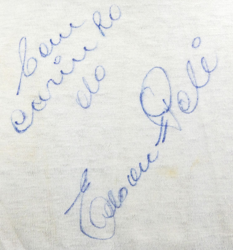 Com
carinho
do
Edson Pelé